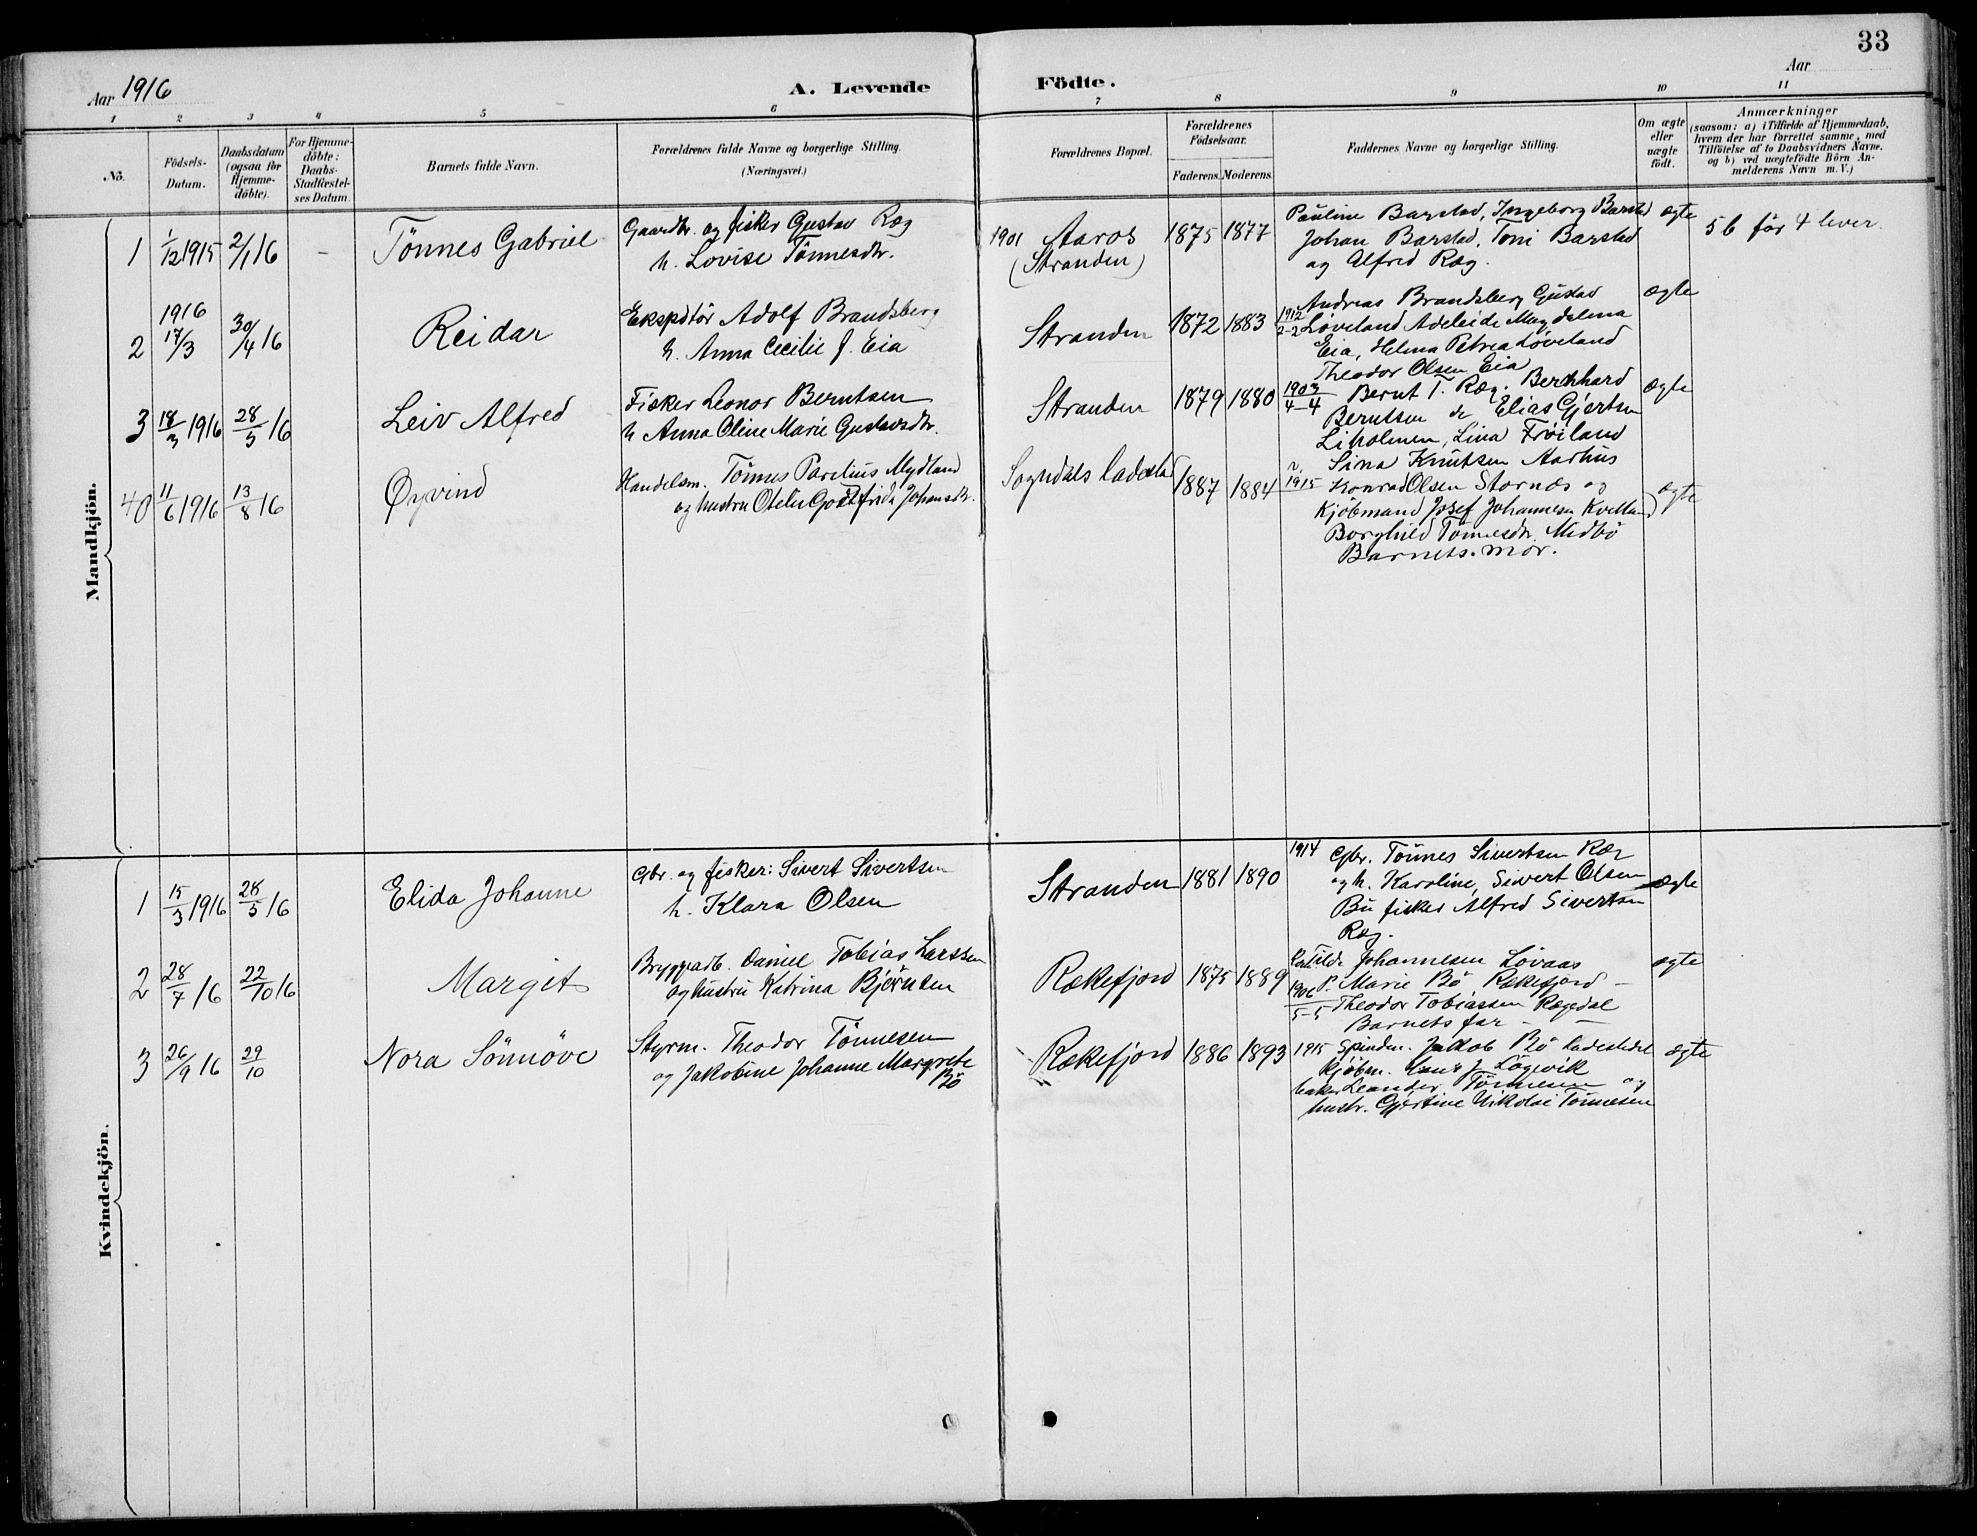 33
Aar 1916
A. Levende Födte.
Aar
1 2 3 4 5 6 7 8 9 10 11
Nö.
Födsels-Datum.
Daabsdatum (ogsaa for Hjemme-döbte).
For Hjemme-döbte: Daabs-Stadfæstel-ses Datum.
Barnets fulde Navn.
Forældrenes fulde Navne og borgerlige Stilling.
(Næringsvei.)
Forældrenes Bopæl.
Forældrenes Födselsaar.
Faderens. Moderens.
Faddernes Navne og borgerlige Stilling.
Om ægte eller uægte födt.
Anmærkninger
(saasom: a) i Tilfælde af Hjemmedaab,
hvem der har forrettet samme, med
Tilföielse af to Daabsvidners Navne.
og b) ved uægtefödte Börn An-
melderens Navn m. V.)
Mandkjön.
1 1/12 1915 2/1 16 - Tönnes Gabriel
Gaardbr. og fisker Gustav Ræg
h. Lovise Tönnesdtr.
1901 Aaros
(Stranden)
1875 1877
Pauline Barstad, Ingeborg Barstad
Johan Barstad, Toni Barstad
og Alfred Ræg.
ægte
5 b før 4 lever.
1916
2 17/3 30/4 16 Reidar
Ekspdtör Adolf Brandsberg
h. Anna Cecilie J. Eia
Stranden 1872 1883
1912
2-2
Andreas Brandsberg Gustav
Løveland Adeleide Magdalena
Eia, Helena Petrea Løveland
Theodor Olsen Eia
ægte
3 18/3 1916 28/5 16 Leiv Alfred
Fisker Leonor Berntsen
h Anna Oline Marie Gustavsdtr.
Stranden 1879 1880
1903
4-4
Bernt T. Ræg. Bernhard
Berntsen do Elias Gjertsen
Liholmen, Lina Frøiland
Sina Knutsen Aarhus
ægte
40 11/6 1916 13/8 16 Øyvind
Handelsm. Tönnes Parelius Mydland
og hustru Otelie Godtfrida Johansdtr.
Sogndals ladested 1887 1884
1915
Konrad Olsen Stornæs og
Kjöbmand Josef Johannesen Kvelland
Borghild Tönnesdtr. Midbö
Barnets mor.
ægte
Kvindekjön.
1 15/3 1916 28/5 16 Elida Johanne
Gbr. og fisker: Sivert Sivertsen
h. Klara Olsen
Stranden 1881 1890
1914
Gbr. Tönnes Sivertsen Ræg
og h. Karoline, Sivert Olsen
Bu fisker Alfred Sivertsen
Ræg.
ægte
2 28/7 16 22/10 16 Margit
Bryggearb. Daniel Tobias Larssen
og hustru Katrina Björnsen
Rækefjord 1875 1889
1906
5-5
Johannesen Lövaas
P. Marie Bö Rækefjord -
Theodor Tobiassen Rægedal
Barnets far -
ægte
3 26/9 16 29/10 Nora Sönnöve
Styrm. Theodor Tönnesen
og Jakobine Johanne Margrete
Bö
Rækefjord 1886 1893
1915
Jakob Bö Ladestedet
Kjöbm. Hans J. Lögevik
Leander Tönnesen og
hustr. Gjertine Nikolai Tönnesen
ægte